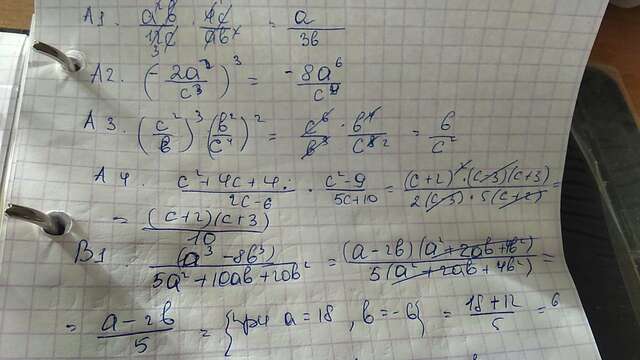 A1. a²b/12c · 4c/ab² = a/3b
A2. (-2a²/c³)³ = -8a⁶/c⁹
A3. (c²/b)³ (b²/c⁴)² = c⁶/b³ · b⁴/c⁸ = b/c²
A4. c²+4c+4/2c-6 · c²-9/5c+10 = (c+2)²·(c-3)(c+3)/2(c-3)·5(c+2) =
= (c+2)(c+3)/10
B1 (a³-8b³)/5a²+10ab+20b² = (a-2b)(a²+2ab+4b²)/5(a²+2ab+4b²) =
= a-2b/5 = {при a=18, b=-6} = 18+12/5 = 6